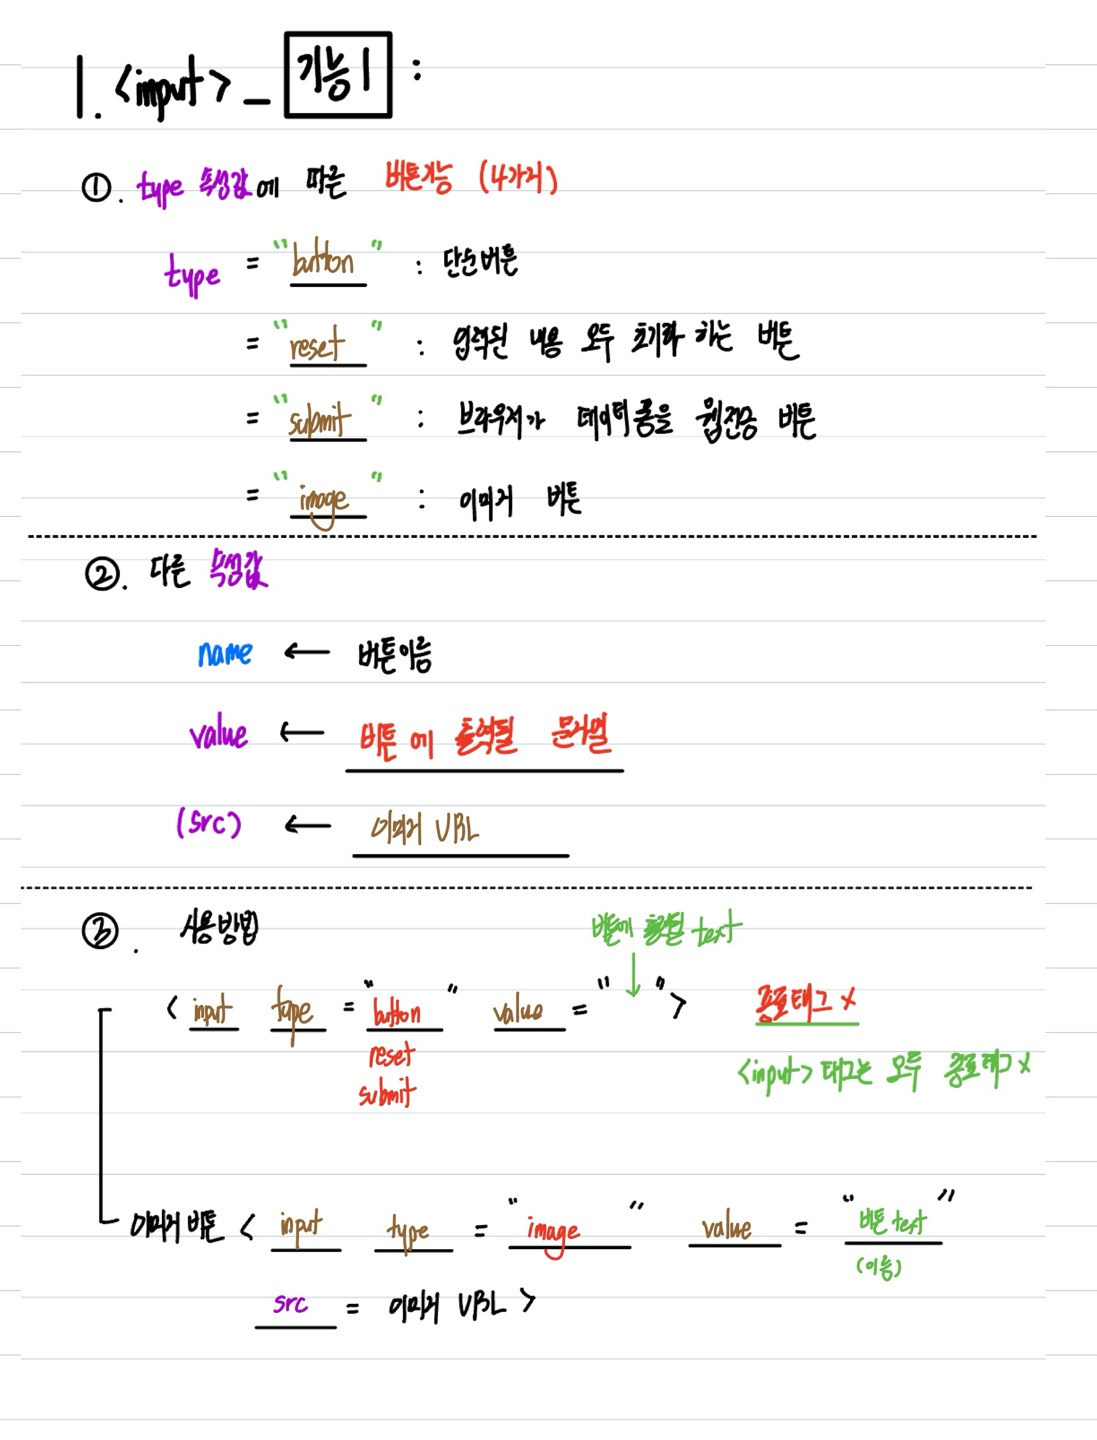 1. <input> _ 기능 1 :
①. type 속성값에 따른 버튼기능 (4가지)
type = "button" : 단순버튼
= "reset" : 입력된 내용 모두 초기화 하는 버튼
= "submit" : 브라우저가 데이터폼을 웹전송 버튼
= "image" : 이미지 버튼
②. 다른 속성값
name ← 버튼이름
value ← 버튼에 출력될 문자열
(src) ← 이미지 URL
③. 사용방법
버튼에 출력될 text
< input type = "button" value = " " > 종료태그 x
reset
submit
<input> 태그는 모두 종료태그 x
이미지 버튼 < input type = "image" value = "버튼 text"
(이름)
src = 이미지 URL >